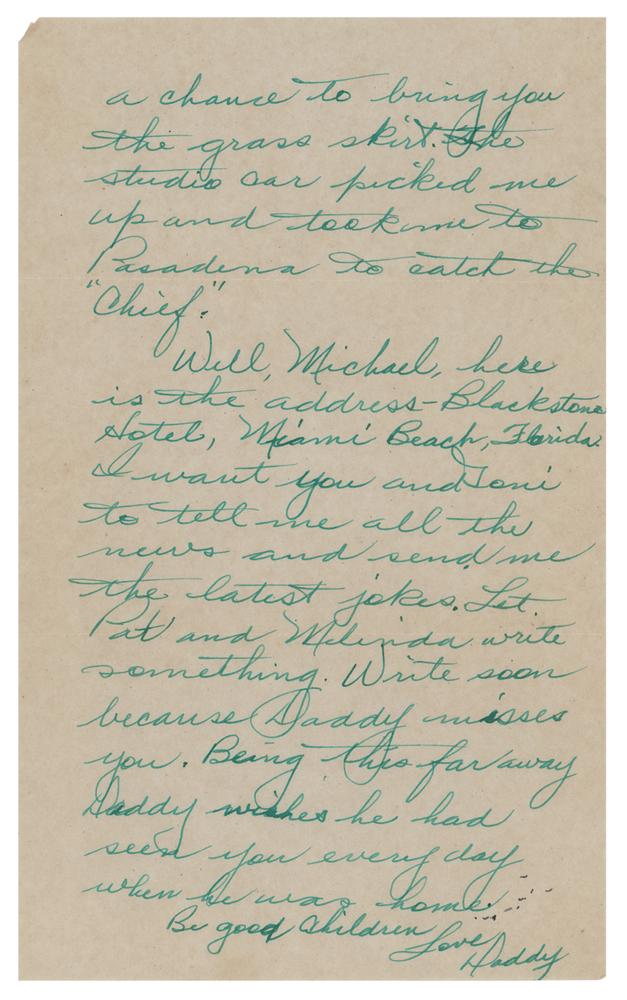 a chance to bring you
the grass skirt. The
studio car picked me
up and took me to
Pasadena to catch the
"Chief."
Well, Michael, here
is the address - Blackstone
Hotel, Miami Beach, Florida.
I want you and Toni
to tell me all the
news and send me
the latest jokes. Let
Pat and Melinda write
something. Write soon
because Daddy misses
you. Being this far away
Daddy wishes he had
seen you every day
when he was home.
Be good children
Love
Daddy